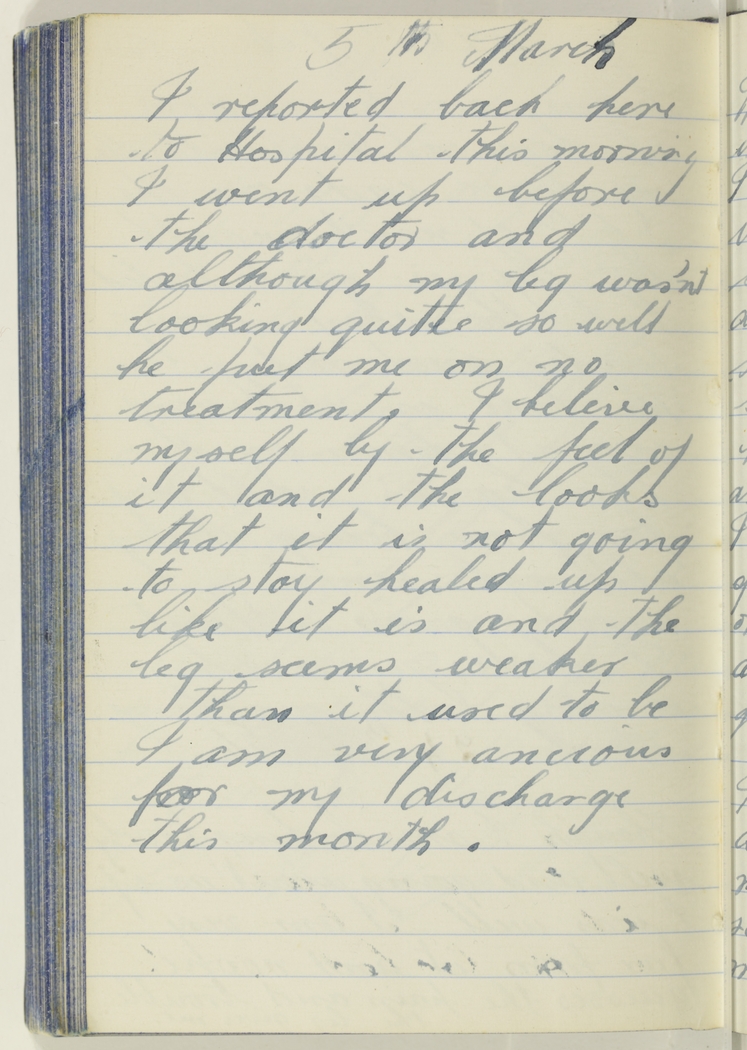 5 th March
I reported back here
to Hospital this morning
I went up before
the doctor and
although my leg wasn't
looking quite so well
he put me on no
treatment. I beleive
myself by the feel of
it and the looks
that it is not going
to stay healed up
like it is and the
leg seems weaker
than it used to be
I am very ancious
for my discharge
this month.